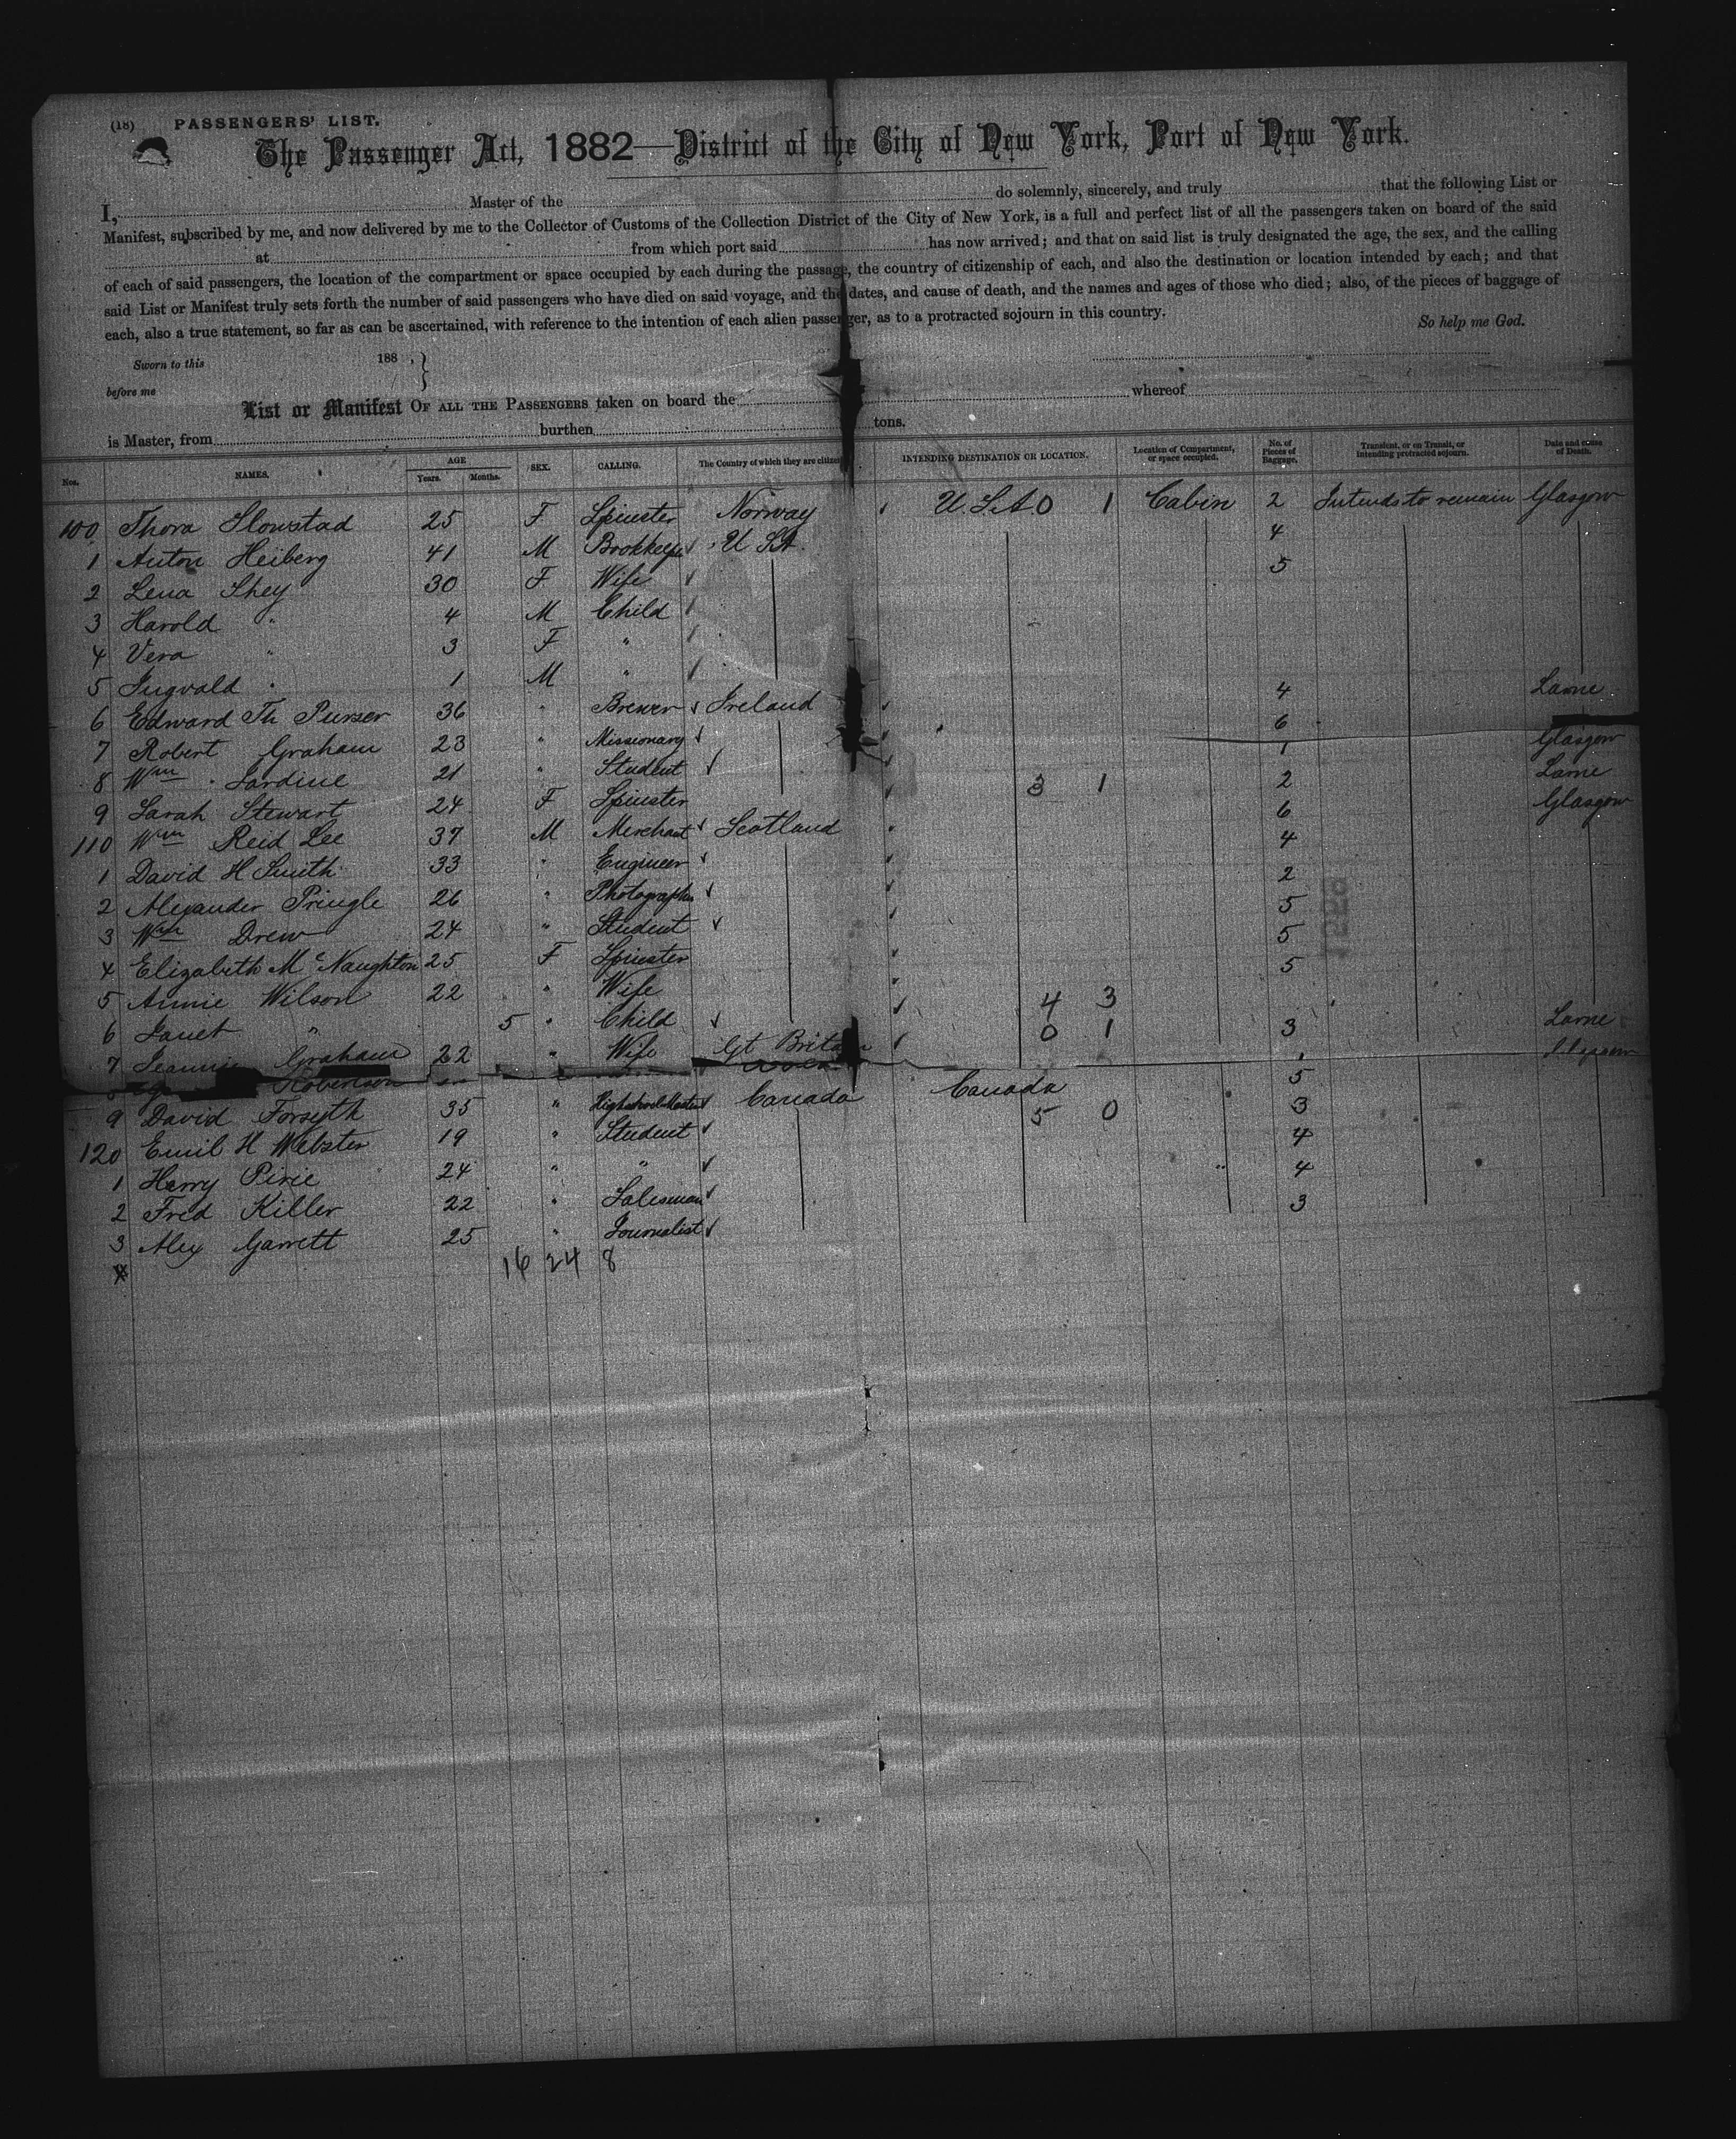 (18) PASSENGERS' LIST.
The Passenger Act, 1882—District of the City of New York, Port of New York.
I, Master of the do solemnly, sincerely, and truly that the following List or
Manifest, subscribed by me, and now delivered by me to the Collector of Customs of the Collection District of the City of New York, is a full and perfect list of all the passengers taken on board of the said
at from which port said has now arrived; and that on said list is truly designated the age, the sex, and the calling
of each of said passengers, the location of the compartment or space occupied by each during the passage, the country of citizenship of each, and also the destination or location intended by each; and that
said List or Manifest truly sets forth the number of said passengers who have died on said voyage, and the dates, and cause of death, and the names and ages of those who died; also, of the pieces of baggage of
each, also a true statement, so far as can be ascertained, with reference to the intention of each alien passenger, as to a protracted sojourn in this country. So help me God.
Sworn to this 188 , }
before me
List or Manifest OF ALL THE PASSENGERS taken on board the whereof
is Master, from burthen tons.
Nos. NAMES. AGE Years. Months. SEX. CALLING. The Country of which they are citizens INTENDING DESTINATION OR LOCATION. Location of Compartment, or space occupied. No. of Pieces of Baggage. Transient, or on Transit, or intending protracted sojourn. Date and cause of Death.
100 Thora 25 F Spinster Norway U.S.A 0 1 Cabin 2 Intends to remain Glasgow
1 Anton Heiberg 41 M Bookkeeper U S A 4
2 Lena Shey 30 F Wife 5
3 Harold " 4 M Child
4 Vera " 3 F "
5 Ingvald " 1 M "
6 Edward Th Purser 36 " Brewer Ireland 4 Larne
7 Robert Graham 23 " Missionary 6
8 Wm Jardine 21 " Student 1 Glasgow
9 Sarah Stewart 24 F Spinster 3 1 2 Larne
110 Wm Reid Lee 37 M Merchant Scotland 6 Glasgow
1 David H Smith 33 " Engineer 4
2 Alexander Pringle 26 " Photographer 2
3 Wm Drew 24 " Student 5
4 Elizabeth McNaughton 25 F Spinster 5
5 Annie Wilson 22 " Wife 5
6 Janet " 5 " Child 4 3
7 Jeannie Graham 22 " Wife Gt Britain 0 1 3 Larne
Robertson
9 David Forsyth 35 " Highschool Master Canada Canada 5
120 Emil H Webster 19 " Student 5 0 3
1 Harry Pirie 24 " " 4
2 Fred Killer 22 " Salesman 4
3 Alex Garrett 25 " Journalist 3
16 24 8